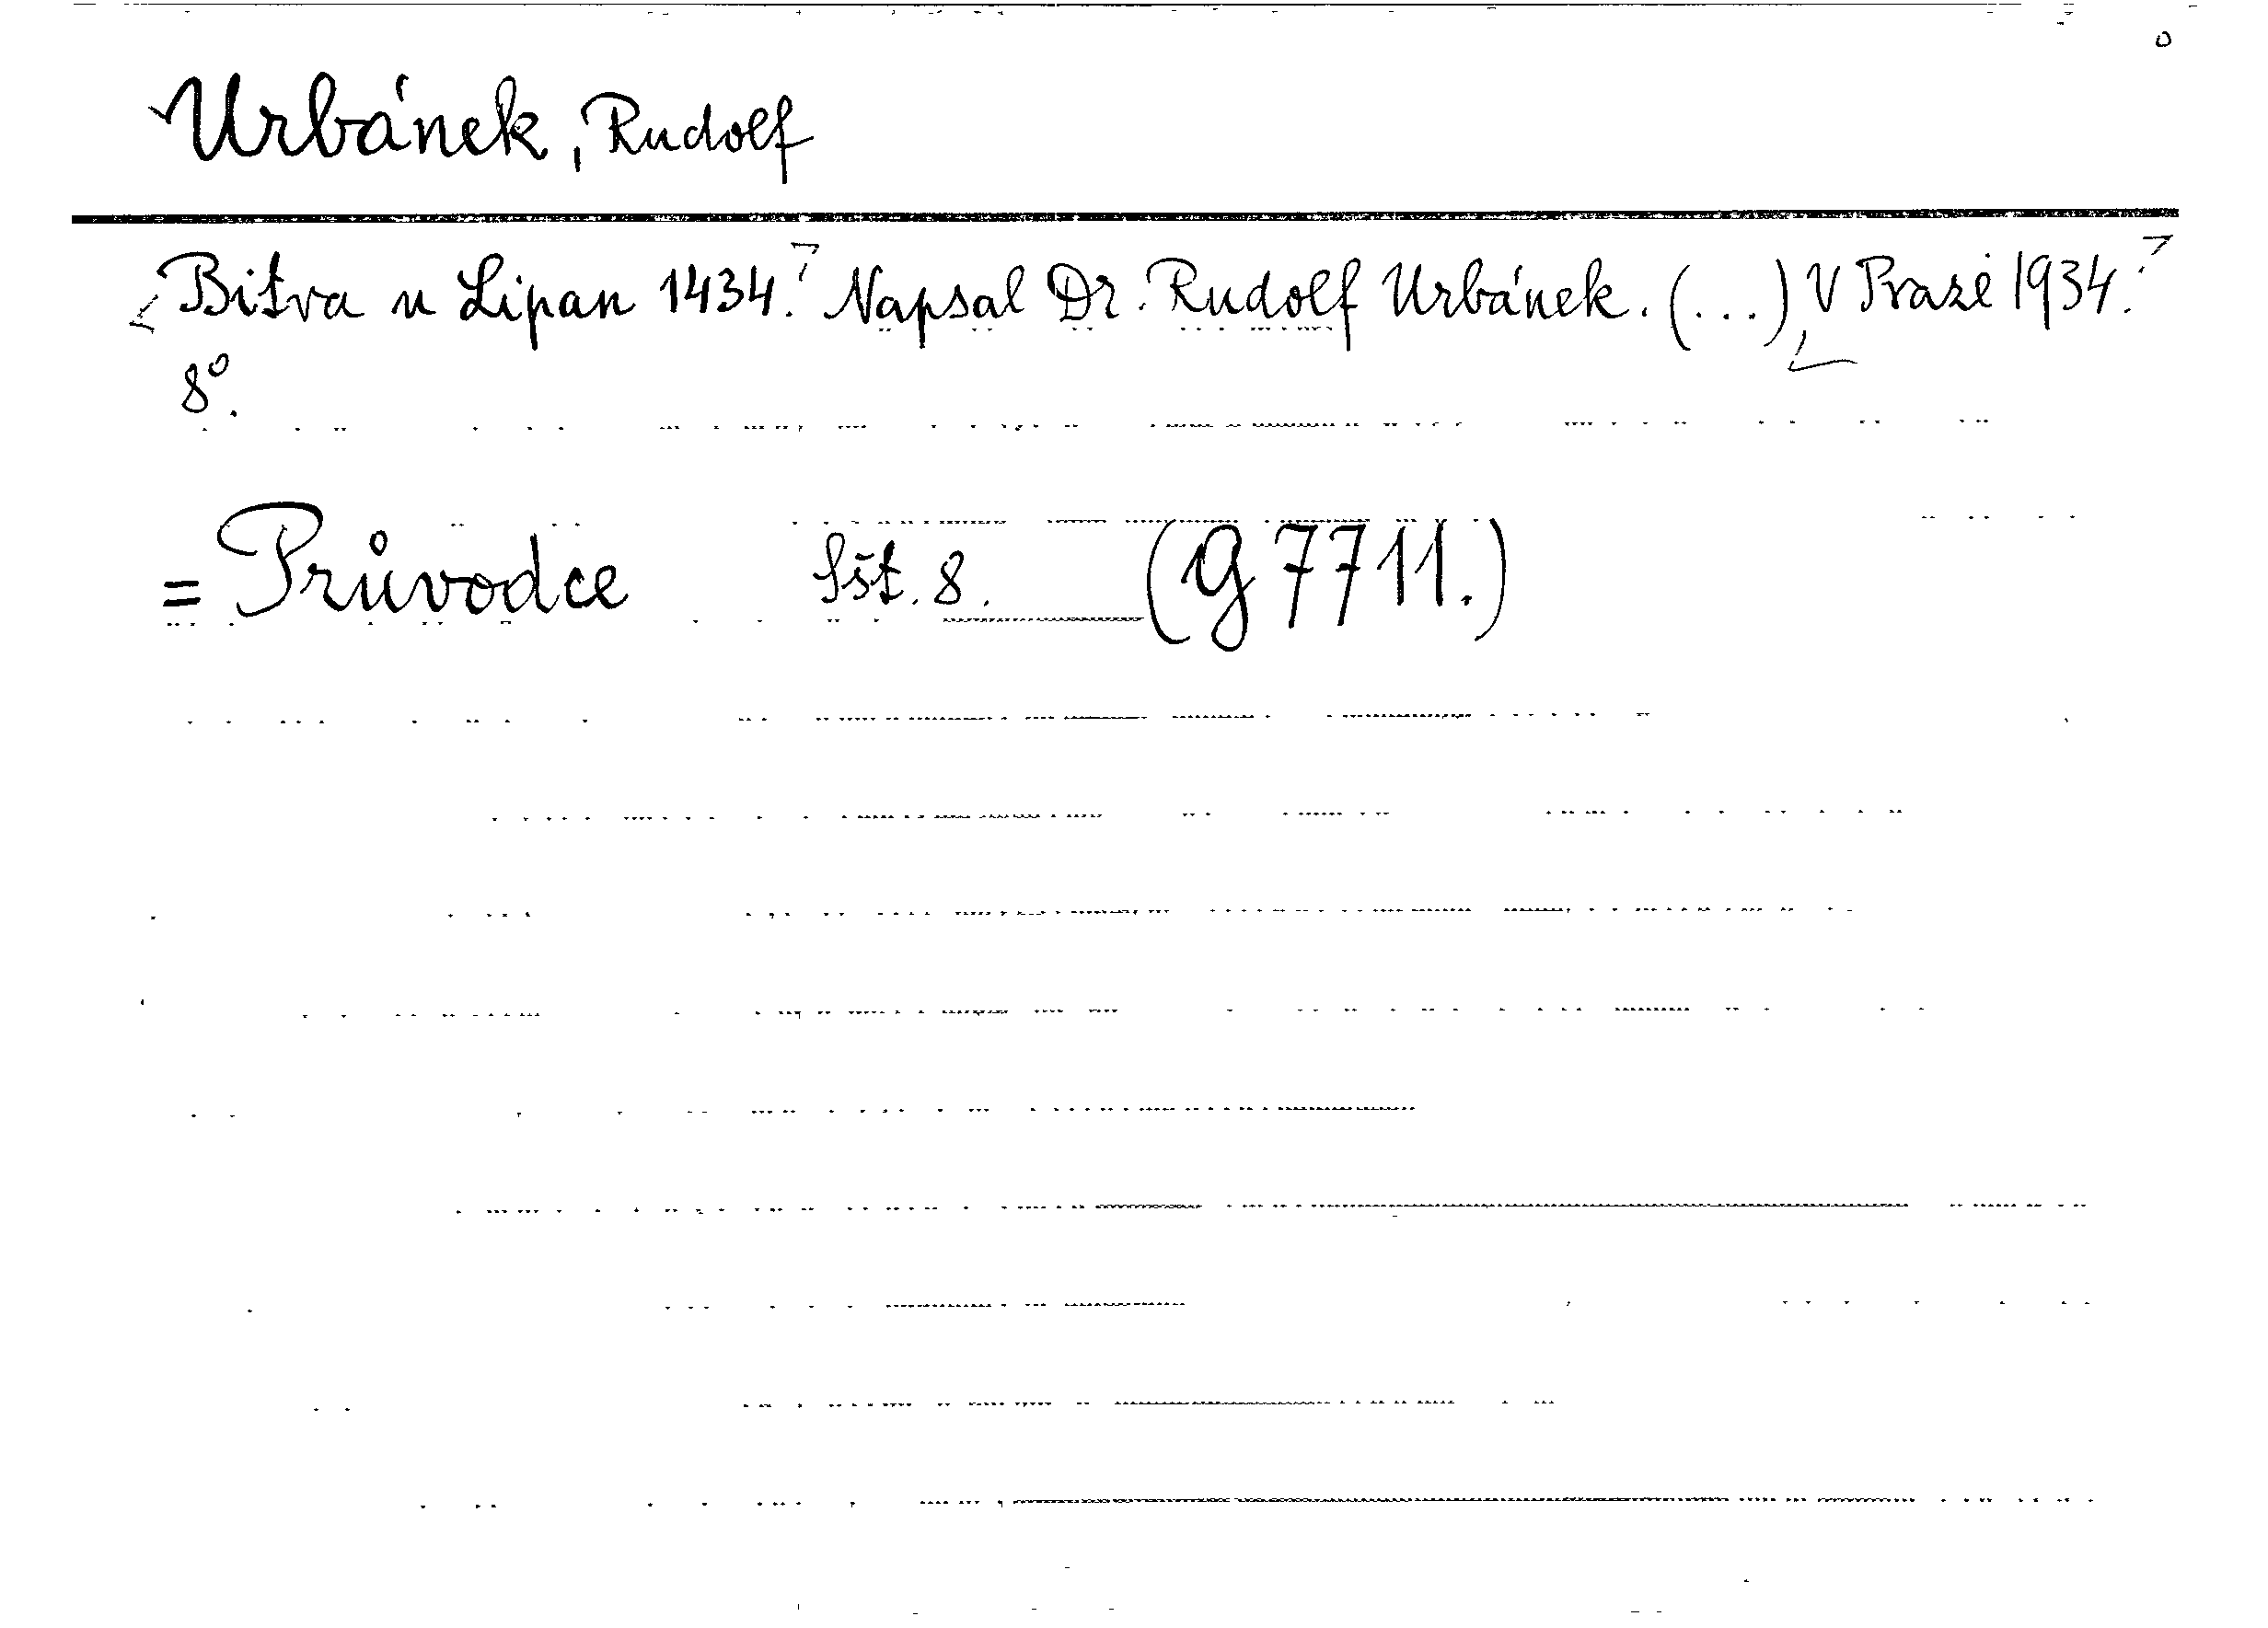 Urbánek, Rudolf
Bitva u Lipan 1434. Napsal Dr. Rudolf Urbánek. (...) V Praze 1934.
8°.
= Průvodce Sšt. 8. (G 7711.)